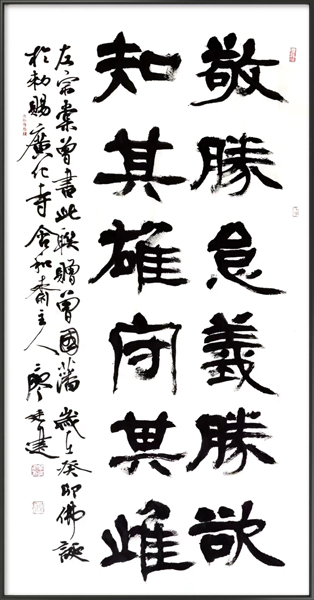 敬勝怠義勝欲
知其雄守其雌
左宗棠曾書此聯贈曾國藩歲在癸卯佛誕
於勅賜廣仁寺含和齋主人廖